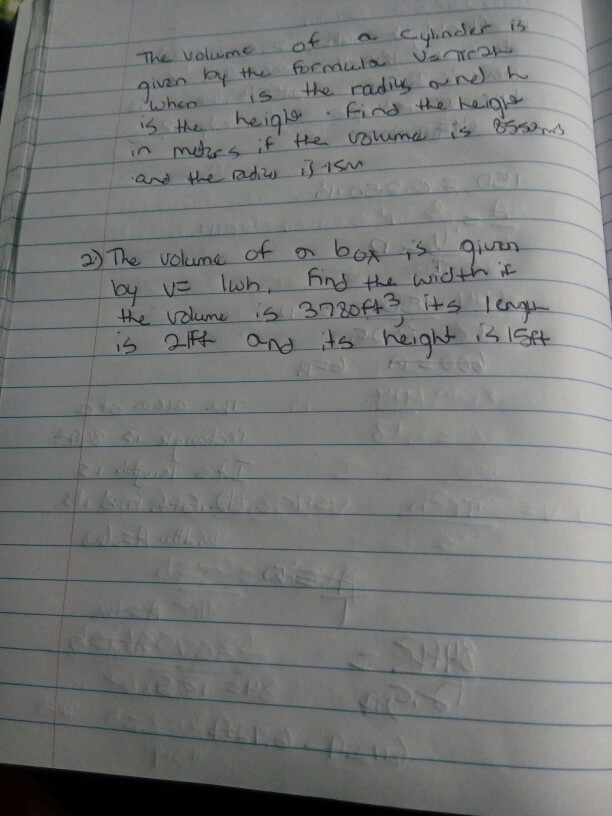 The volume of a cylinder is
given by the formula V=πr2h
when is the radius and h
is the height. Find the height
in metres if the volume is 8550m3
and the radius is 15m
2) The volume of a box is given
by V= lwh. Find the width if
the volume is 3780ft3, its length
is 21ft and its height is 15ft